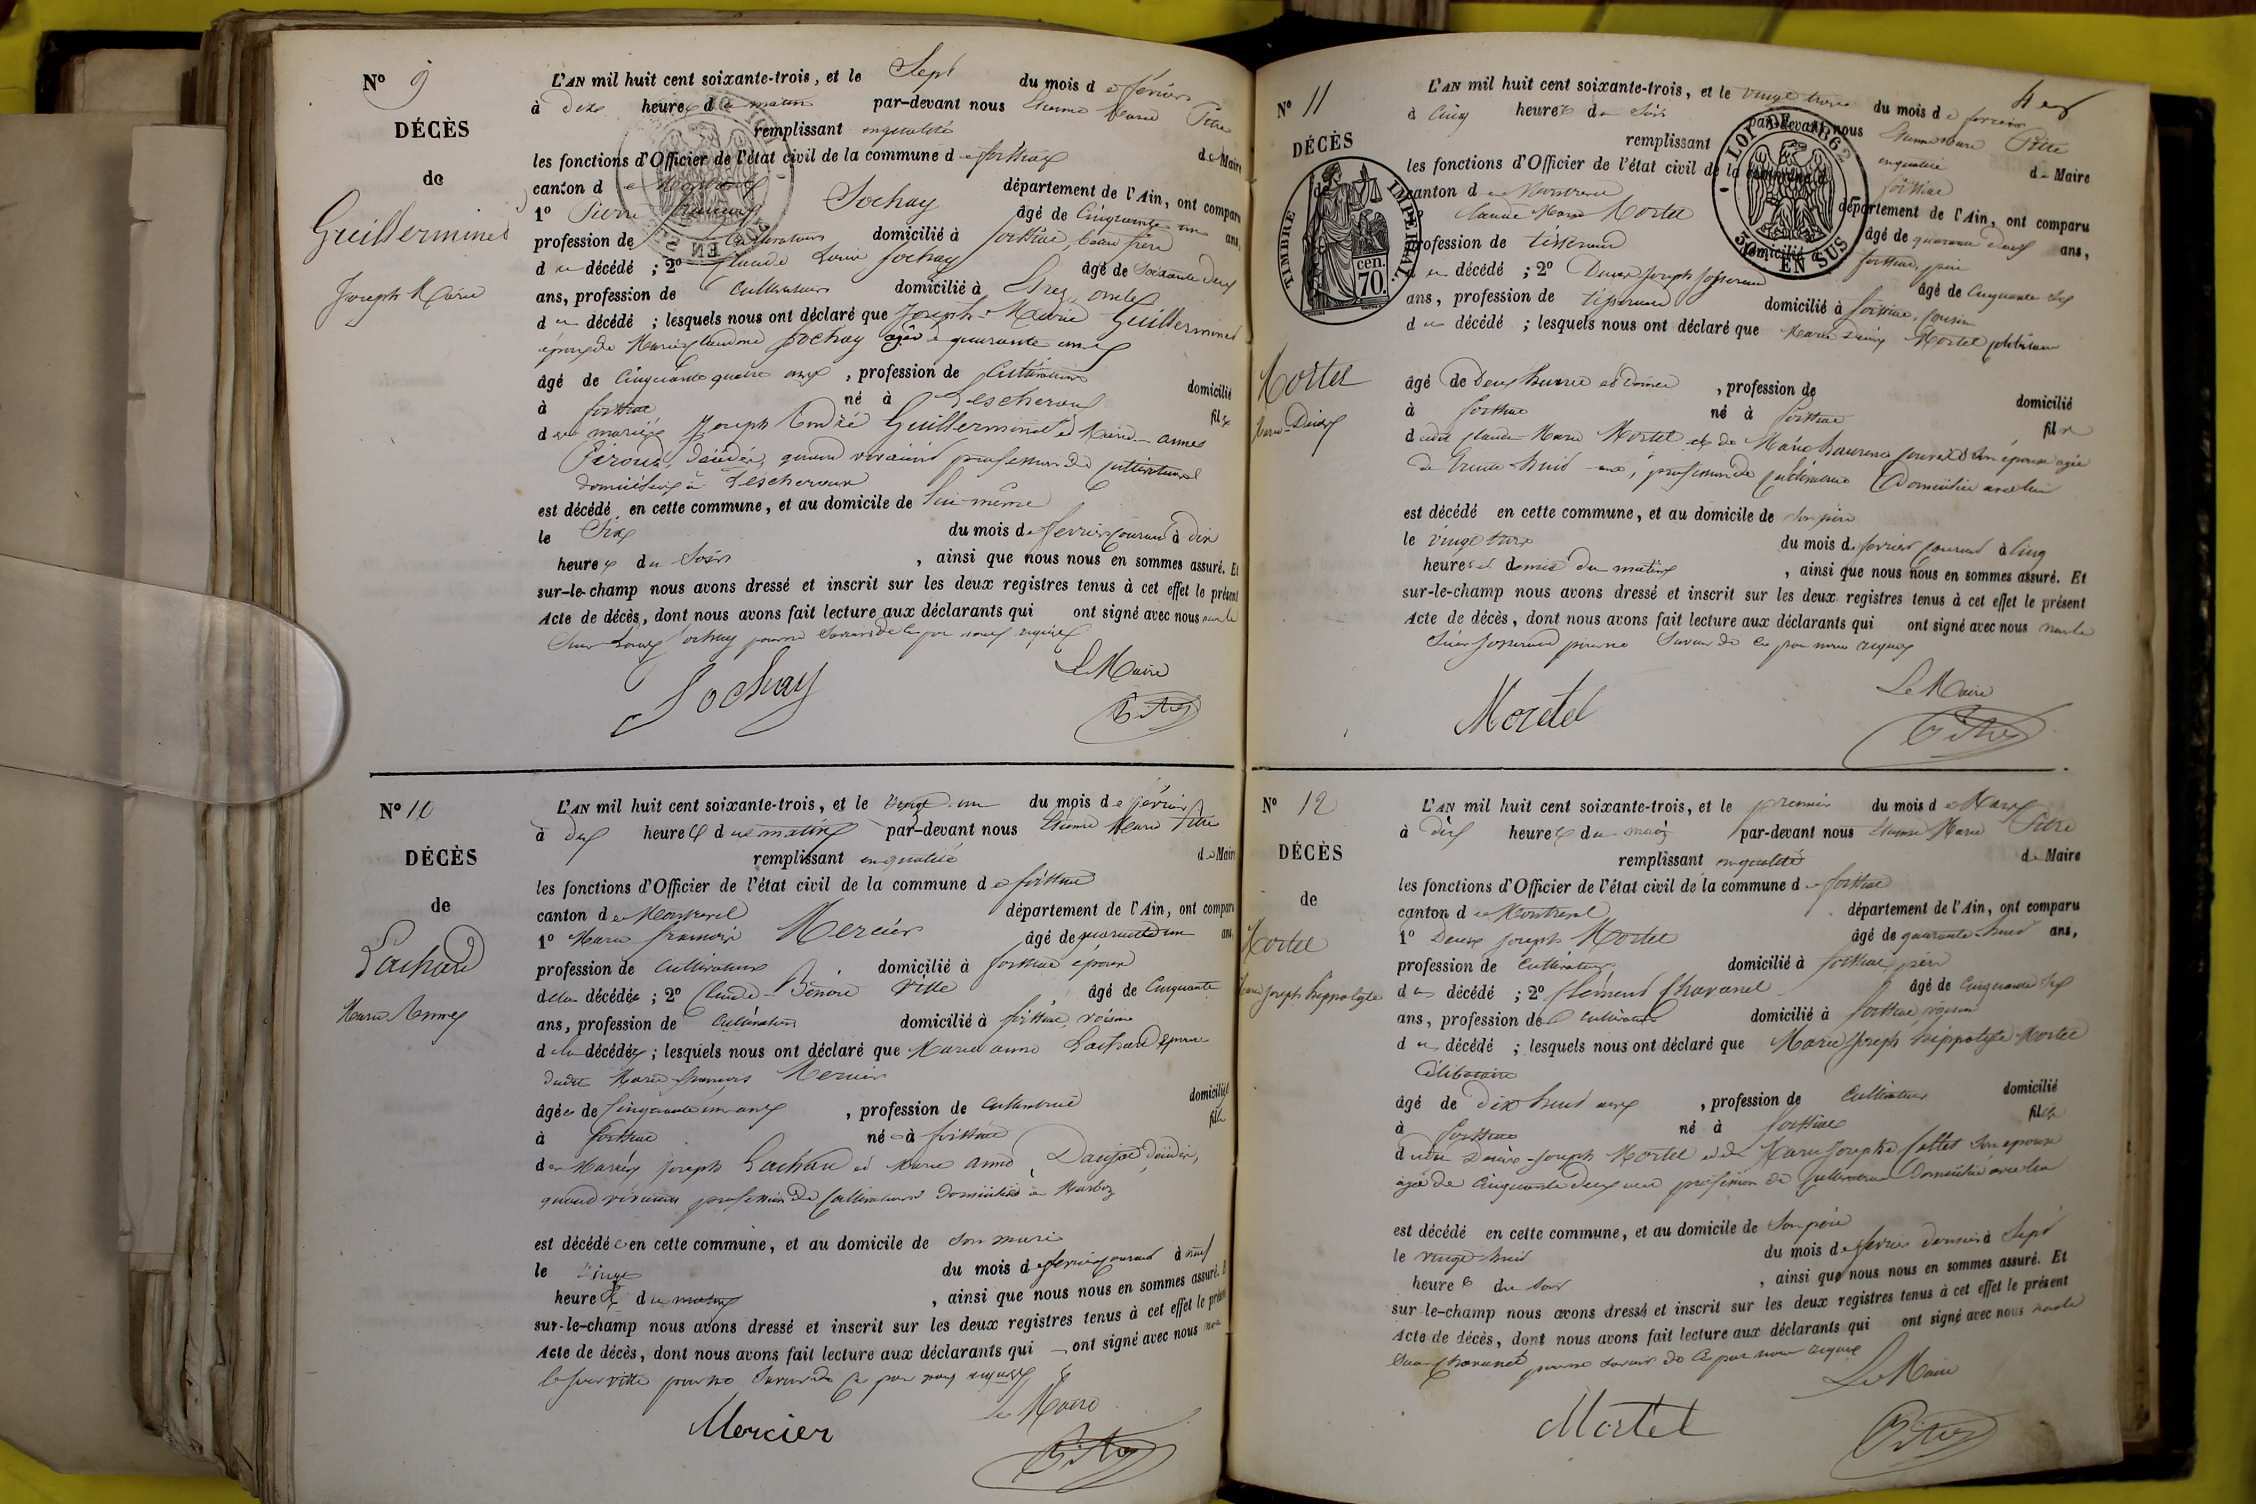 N° 9
DÉCÈS
de
Guillerminet
Joseph Marie
L'AN mil huit cent soixante-trois, et le Sept du mois de février
à dix heures du matin par-devant nous Etienne Marie Pitre
remplissant en qualité de Maire
les fonctions d'Officier de l'état civil de la commune de
canton de Montrevel département de l'Ain, ont comparu
1° Pierre François Sochay âgé de Cinquante un ans,
profession de Cultivateur domicilié à beau père
du décédé ; 2° Claude Louis Sochay âgé de Soixante deux
ans, profession de Cultivateur domicilié à oncle
du décédé ; lesquels nous ont déclaré que Joseph Marie Guillerminet
époux de Marie Claudine Sochay âgée de quarante ans
âgé de Cinquante quatre ans, profession de Cultivateur domicilié
à né à Lescheroux fils
des mariés Joseph André Guillerminet et Marie Anne
décédés, quand vivaient profession de cultivateurs
domiciliés à Lescheroux
est décédé en cette commune, et au domicile de lui-même
le Six du mois de février courant à dix
heures du Soir, ainsi que nous nous en sommes assuré. Et
sur-le-champ nous avons dressé et inscrit sur les deux registres tenus à cet effet le présent
Acte de décès, dont nous avons fait lecture aux déclarants qui ont signé avec nous non le
Sieur Louis Sochay pour ne Savoir de ce par nous requis
Le Maire
Sochay
Pitre
N° 10
DÉCÈS
de
Lachard
Marie Anne
L'AN mil huit cent soixante-trois, et le vingt un du mois de février
à dix heures du matin par-devant nous Etienne Marie Pitre
remplissant en qualité de Maire
les fonctions d'Officier de l'état civil de la commune de
canton de Montrevel département de l'Ain, ont comparu
1° Marie François Mercier âgé de quarante un ans,
profession de Cultivateur domicilié à époux
de la décédée ; 2° Claude Benoit Vitte âgé de Cinquante
ans, profession de Cultivateur domicilié à voisin
de la décédée ; lesquels nous ont déclaré que Marie Anne Lachard épouse
dudit Marie François Mercier
âgée de Cinquante un ans, profession de Cultivatrice domiciliée
à née à fille
des Mariés Joseph Lachard et Marie Anne décédés,
quand vivaient profession de Cultivateurs domiciliés à Marboz
est décédée en cette commune, et au domicile de son mari
le vingt du mois de février courant à neuf
heures du matin, ainsi que nous nous en sommes assuré. Et
sur-le-champ nous avons dressé et inscrit sur les deux registres tenus à cet effet le présent
Acte de décès, dont nous avons fait lecture aux déclarants qui ont signé avec nous non
le Sieur Vitte pour ne Savoir de Ce par nous requis
Le Maire
Mercier
Pitre
4 es
N° 11
DÉCÈS
de
TIMBRE IMPÉRIAL
70 cen.
LOI DE 1862
30me EN SUS
Mortel
Marie Denis
L'AN mil huit cent soixante-trois, et le vingt trois du mois de février
à Cinq heures du Soir par-devant nous Etienne Marie Pitre
remplissant en qualité de Maire
les fonctions d'Officier de l'état civil de la commune de
canton de Montrevel département de l'Ain, ont comparu
1° Claude Marie Mortel âgé de quarante deux ans,
profession de tisserand domicilié à père
du décédé ; 2° Denis Joseph Josserand âgé de Cinquante six
ans, profession de tisserand domicilié à cousin
du décédé ; lesquels nous ont déclaré que Marie Denis Mortel célibataire
âgé de Deux heures et demie, profession de domicilié
à né à fils
dudit Claude Marie Mortel et de Marie Laurence son épouse agée
de trente huit ans, profession de Cultivatrice Domiciliée avec lui
est décédé en cette commune, et au domicile de son père
le vingt trois du mois de février courant à Cinq
heures et demie du matin, ainsi que nous nous en sommes assuré. Et
sur-le-champ nous avons dressé et inscrit sur les deux registres tenus à cet effet le présent
Acte de décès, dont nous avons fait lecture aux déclarants qui ont signé avec nous non le
Sieur Josserand pour ne Savoir de Ce par nous requis
Le Maire
Mortel
Pitre
N° 12
DÉCÈS
de
Mortel
Marie Joseph hippolyte
L'AN mil huit cent soixante-trois, et le premier du mois de Mars
à dix heures du matin par-devant nous Etienne Marie Pitre
remplissant en qualité de Maire
les fonctions d'Officier de l'état civil de la commune de
canton de Montrevel département de l'Ain, ont comparu
1° Denis Joseph Mortel âgé de quarante-huit ans,
profession de Cultivateur domicilié à père
du décédé ; 2° Clément Chavanel âgé de Cinquante six
ans, profession de Cultivateur domicilié à voisin
du décédé ; lesquels nous ont déclaré que Marie Joseph hippolyte Mortel
Célibataire
âgé de Dix huit ans, profession de Cultivateur domicilié
à né à fils
dudit Denis Joseph Mortel et de Marie Josephte son épouse
âgée de Cinquante deux ans profession de Cultivatrice Domiciliée avec lui
est décédé en cette commune, et au domicile de Son père
le vingt-huit du mois de février dernier à Sept
heures du Soir, ainsi que nous nous en sommes assuré. Et
sur-le-champ nous avons dressé et inscrit sur les deux registres tenus à cet effet le présent
Acte de décès, dont nous avons fait lecture aux déclarants qui ont signé avec nous non le
Sieur Chavanel pour ne Savoir de Ce par nous requis
Le Maire
Mortel
Pitre